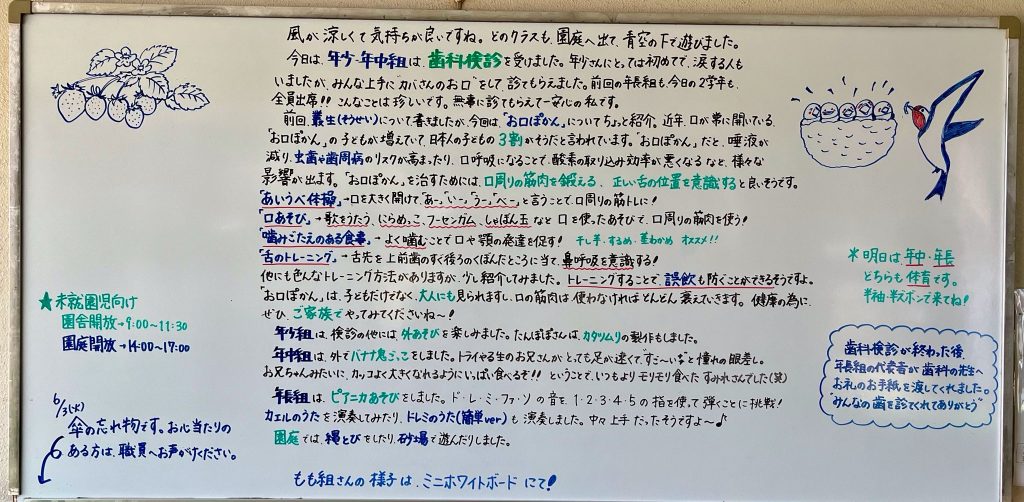 風が涼しくて気持ちが良いですね。どのクラスも、園庭へ出て、青空の下で遊びました。
今日は、年少・年中組は、歯科検診を受けました。年少さんにとっては初めてで、涙する人も
いましたが、みんな上手に"カバさんのお口"をして、診てもらえました。前回の年長組も、今日の2学年も、
全員出席!! こんなことは珍しいです。無事に診てもらえて一安心の私です。
前回、叢生(そうせい)について書きましたが、今回は、「お口ぽかん」についてちょっと紹介。近年、口が常に開いている
「お口ぽかん」の子どもが増えていて日本人の子どもの3割がそうだと言われています。"お口ぽかん"だと、唾液が
減り、虫歯や歯周病のリスクが高まったり、口呼吸になることで、酸素の取り込み効率が悪くなるなど、様々な
影響が出ます。「お口ぽかん」を治すためには、口周りの筋肉を鍛える、正しい舌の位置を意識すると良いそうです。
「あいうべ体操」→口を大きく開けて、「あー」「いー」「うー」「べー」と言うことで、口周りの筋トレに!
「口あそび」→歌をうたう、にらめっこ、フーセンガム、しゃぼん玉など口を使ったあそびで、口周りの筋肉を使う!
「噛みごたえのある食事」→よく噛むことで口や顎の発達を促す! 干し芋・するめ・茎わかめ オススメ!!
「舌のトレーニング」→舌先を上前歯のすぐ後ろのくぼんだところに当て、鼻呼吸を意識する!
他にも色んなトレーニング方法がありますが、少し紹介してみました。トレーニングすることで、誤飲も防ぐことができるそうですよ。
「お口ぽかん」は、子どもだけでなく、大人にも見られますし、口の筋肉は使わなければどんどん衰えていきます。健康の為に、
ぜひ、ご家族でやってみてくださいね〜!
年少組は、検診の他には外あそびを楽しみました。たんぽぽさんは、カタツムリの製作もしました。
年中組は、外でバナナ鬼ごっこをしました。トライやる生のお兄さんが、とっても足が速くて、"すご〜い"と憧れの眼差し。
お兄ちゃんみたいに、カッコよく大きくなれるようにいっぱい食べるぞ!! ということで、いつもよりモリモリ食べたすみれさんでした(笑)
年長組は、ピアニカあそびをしました。ド・レ・ミ・ファ・ソの音を、1・2・3・4・5の指を使って弾くことに挑戦!
カエルのうたを演奏してみたり、ドレミのうた(簡単ver)も演奏しました。中々上手だったそうですよ〜♪
園庭では、縄とびをしたり、砂場で遊んだりしました。
もも組さんの様子は、ミニホワイトボードにて!
★未就園児向け
園舎開放→9:00〜11:30
園庭開放→14:00〜17:00
6/3(火)
傘の忘れ物です。お心当たりの
ある方は、職員へお声がけください。
＊明日は、年中・年長
どちらも体育です。
半袖・半ズボンで来てね!
歯科検診が終わった後、
年長組の代表者が歯科の先生へ
お礼のお手紙を渡してくれました。
"みんなの歯を診てくれてありがとう"